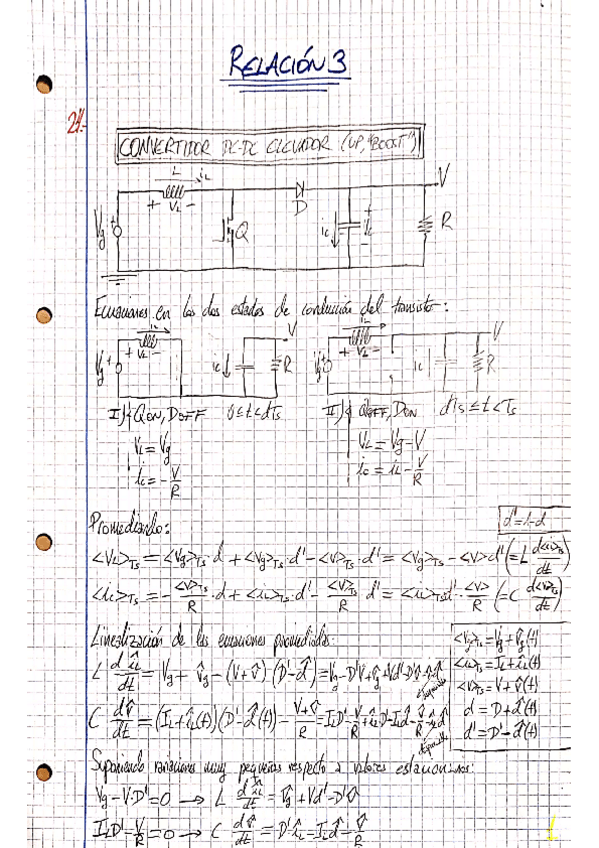 RELACIÓN 3
2).-
CONVERTIDOR DC-DC ELEVADOR (UP, "BOOST")
L iL V
+ VL - D
Vg + Q ic + Vc - R
Ecuaciones en los dos estados de conducción del transistor:
iL V iL V
Vg + + VL - ic R Vg + + VL - ic R
I) Q ON, D OFF 0≤t<dTs II) Q OFF, D ON dTs≤t<Ts
VL = Vg VL = Vg-V
ic = -V/R ic = iL - V/R
d'=1-d
Promediando:
<VL>Ts = <Vg>Ts·d + <Vg>Ts·d' - <V>Ts·d' = <Vg>Ts - <V>d' (= L d<i>Ts/dt)
<ic>Ts = -<V>Ts/R ·d + <iL>Ts·d' - <V>Ts/R d' = <iL>Ts d' - <V>/R (= C d<V>Ts/dt)
Linealización de las ecuaciones promediadas:
<Vg>Ts = Vg + v̂g(t)
<iL>Ts = IL + îL(t)
<V>Ts = V + v̂(t)
d = D + d̂(t)
d' = D' - d̂(t)
L dîL/dt = Vg + v̂g - (V+v̂)(D'-d̂) = Vg - D'V + v̂g + Vd̂ - D'v̂ + v̂·d̂
C dv̂/dt = (IL+îL(t))(D'-d̂(t)) - (V+v̂)/R = ILD' - V/R + îLD' - ILd̂ - v̂/R - îLd̂
Suponiendo variaciones muy pequeñas respecto a valores estacionarios:
Vg - V·D' = 0 → L dîL/dt = v̂g + Vd̂ - D'v̂
ILD' - V/R = 0 → C dv̂/dt = D'îL - ILd̂ - v̂/R
1